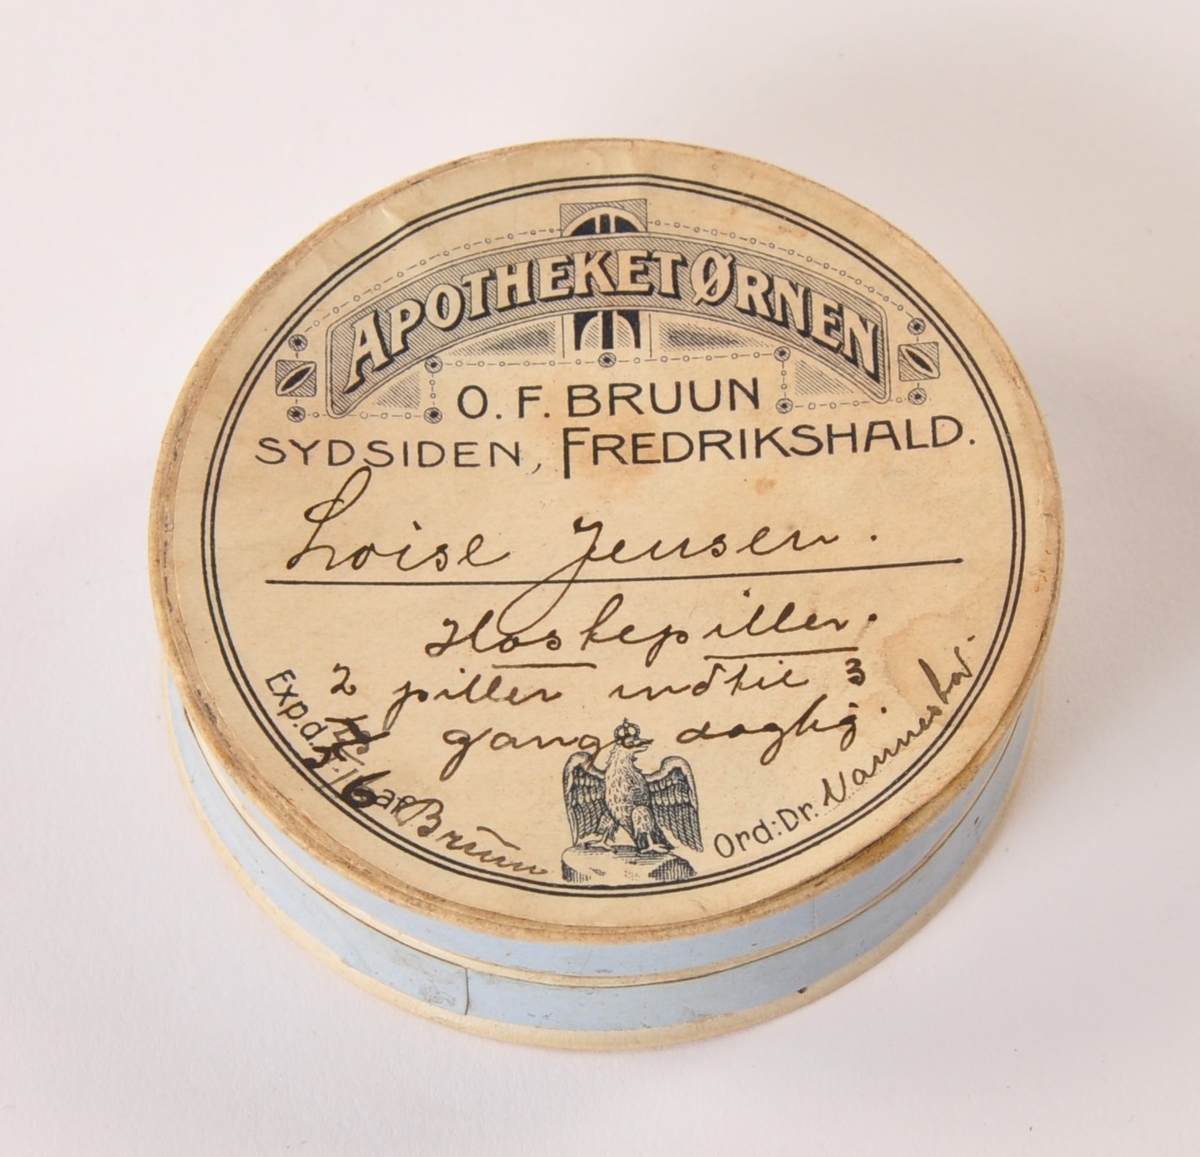 APOTHEKET ØRNEN
O. F. BRUUN
SYDSIDEN, FREDRIKSHALD.
Loise Jensen.
Hostepiller.
2 piller indtil 3
gange daglig.
Exp.d. af Bruun
Ord: Dr.